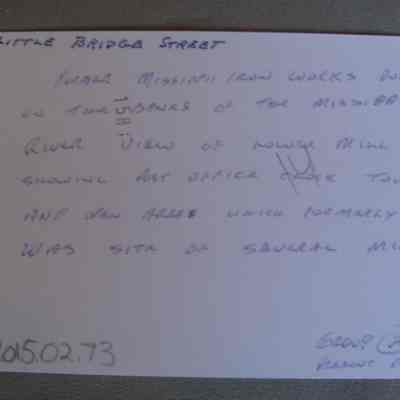 LITTLE BRIDGE STREET
FORMER MISSISSIPPI IRON WORKS
ON THE BANKS OF THE MISSISS
RIVER VIEW OF LOWER MILL
SHOWING POST OFFICE CLOCK TOW
AND NEW AREA WHICH FORMERLY
WAS SITE OF SEVERAL MI
2015.02.73
GROUP